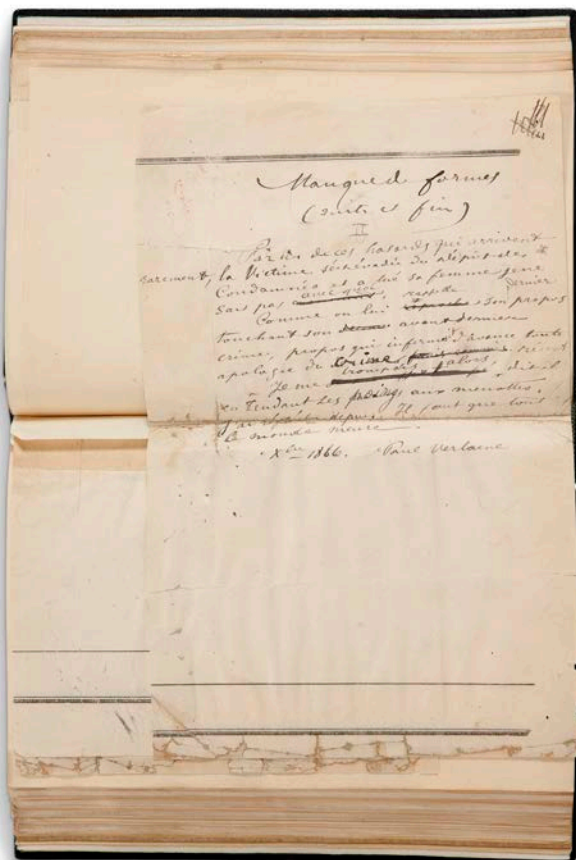 161
Manque de formes
(suite et fin)
II
Par un de ces hasards qui arrivent
rarement, la Victime s'est évadée du dépôt des
Condamnés et a tué sa femme je ne
sais pas avec quoi.
Comme on lui rappelle son propos dernier
touchant son avant dernier
crime, propos qui infirme d'avance toute
apologie du crime
Je me trompais alors, dit-il
en tendant les poings aux menottes,
depuis. Il faut que tout
le monde meure.
Xbre 1866. Paul Verlaine